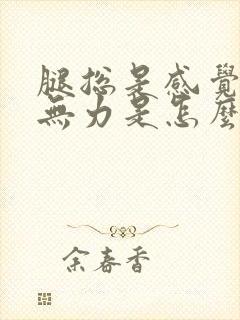 腿总是感覺
無力是怎麼
余春香